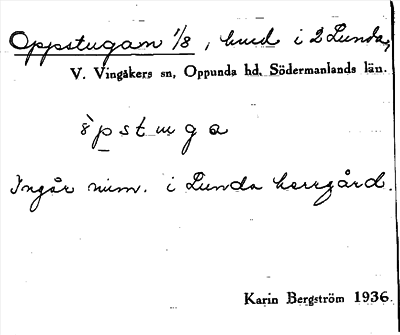 Oppstugan 1/8, hmd i 2 Lunda,
V. Vingåkers sn, Oppunda hd. Södermanlands län.
Ingår num. i Lunda herrgård.
Karin Bergström 1936.